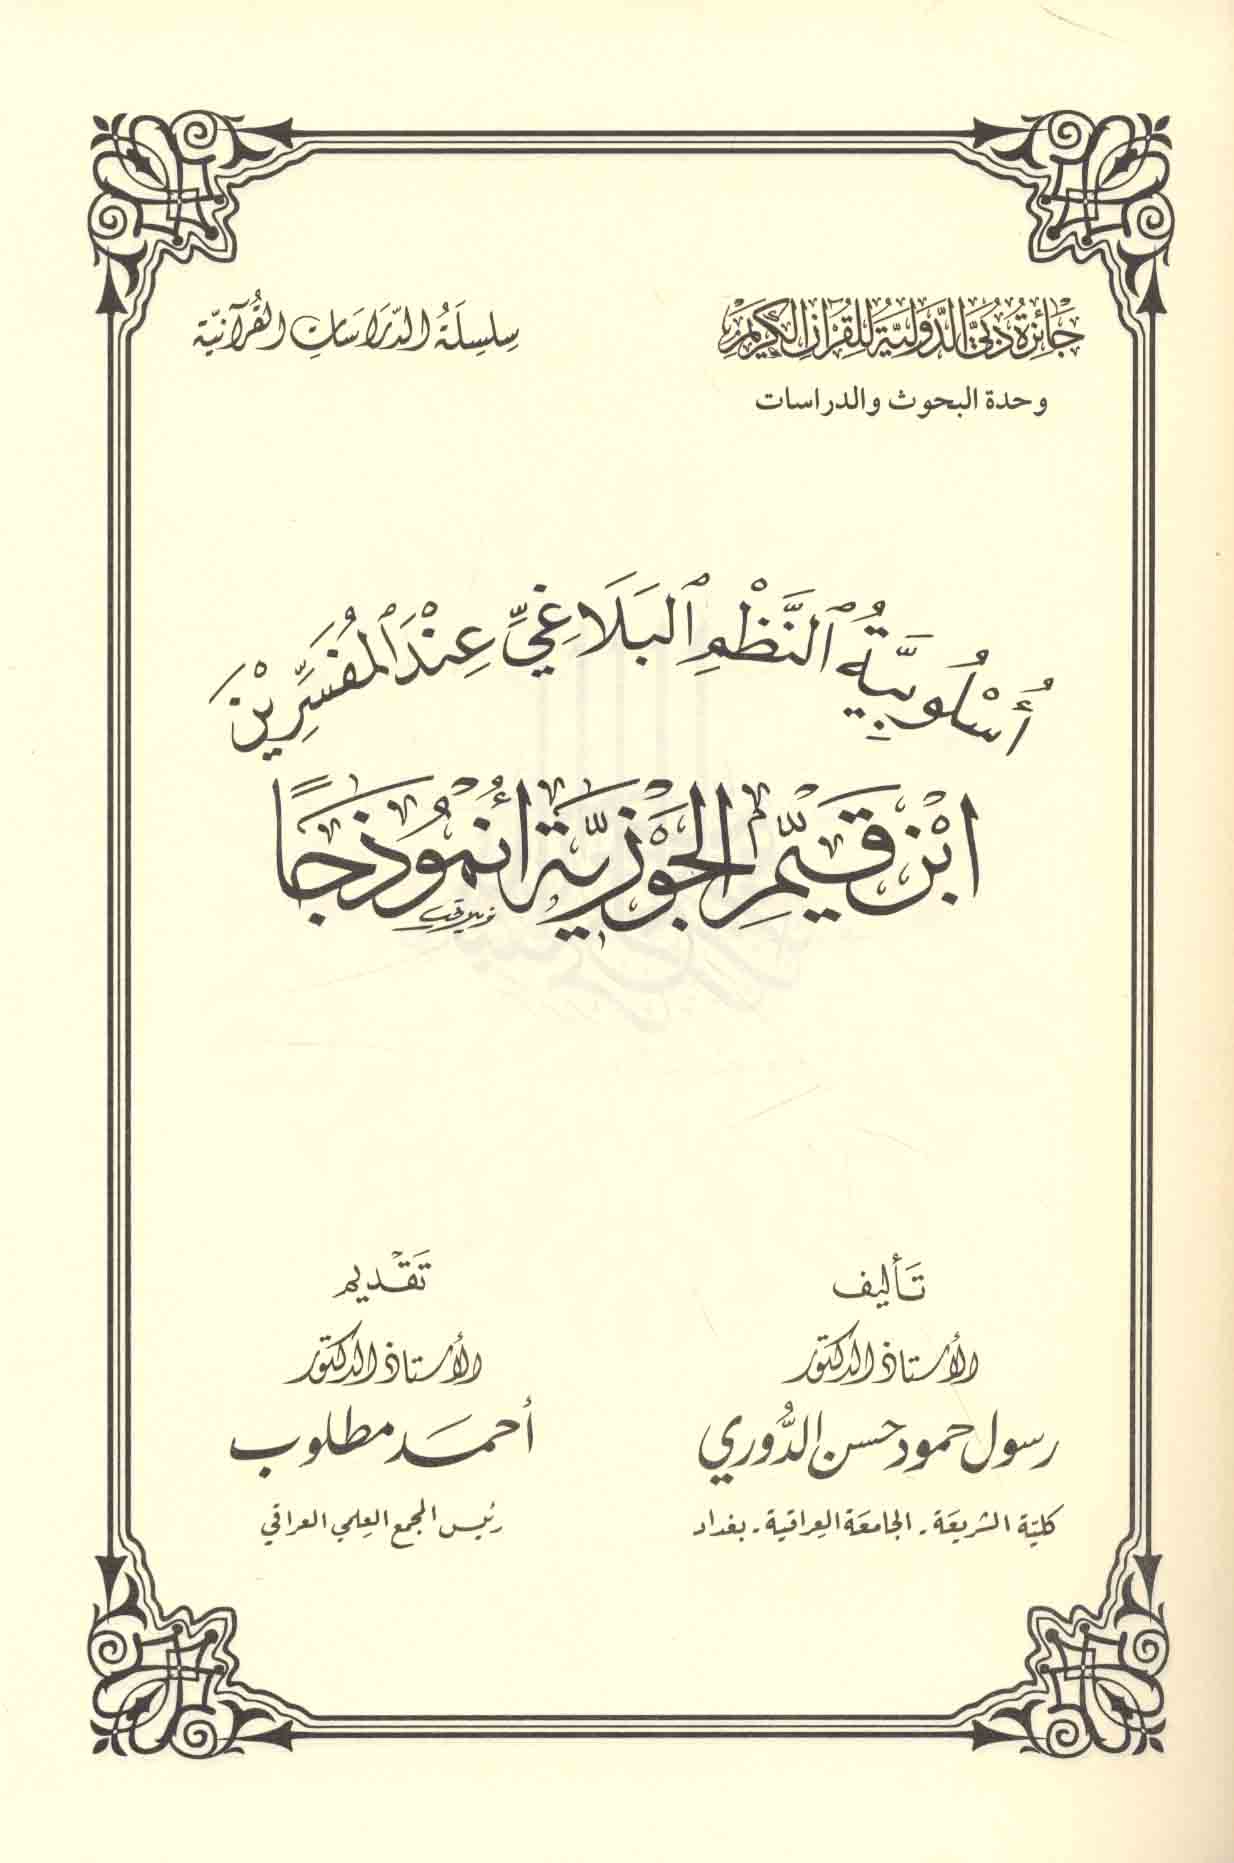 جَائِزَةُ دُبَيّ الدَّوْلِيَّةُ لِلْقُرْآنِ الْكَرِيمِ
وحدة البحوث والدراسات
سِلسِلَةُ الدِّرَاسَاتِ القُرآنيَّة
أُسْلُوبِيَّةُ النَّظْمِ البَلَاغِيِّ عِنْدَ المُفَسِّرِيْنَ
ابْنُ قَيِّمِ الجَوْزِيَّة أُنْمُوذَجًا
تَأليف
الأستاذ الدكتور
رسول حمود حسن الدُّوري
كليّة الشريعَة - الجامعَة العِراقية - بغداد
تَقْديم
الأستاذ الدكتور
أحمَد مطلوب
رئيس المجمع العِلمي العراقي